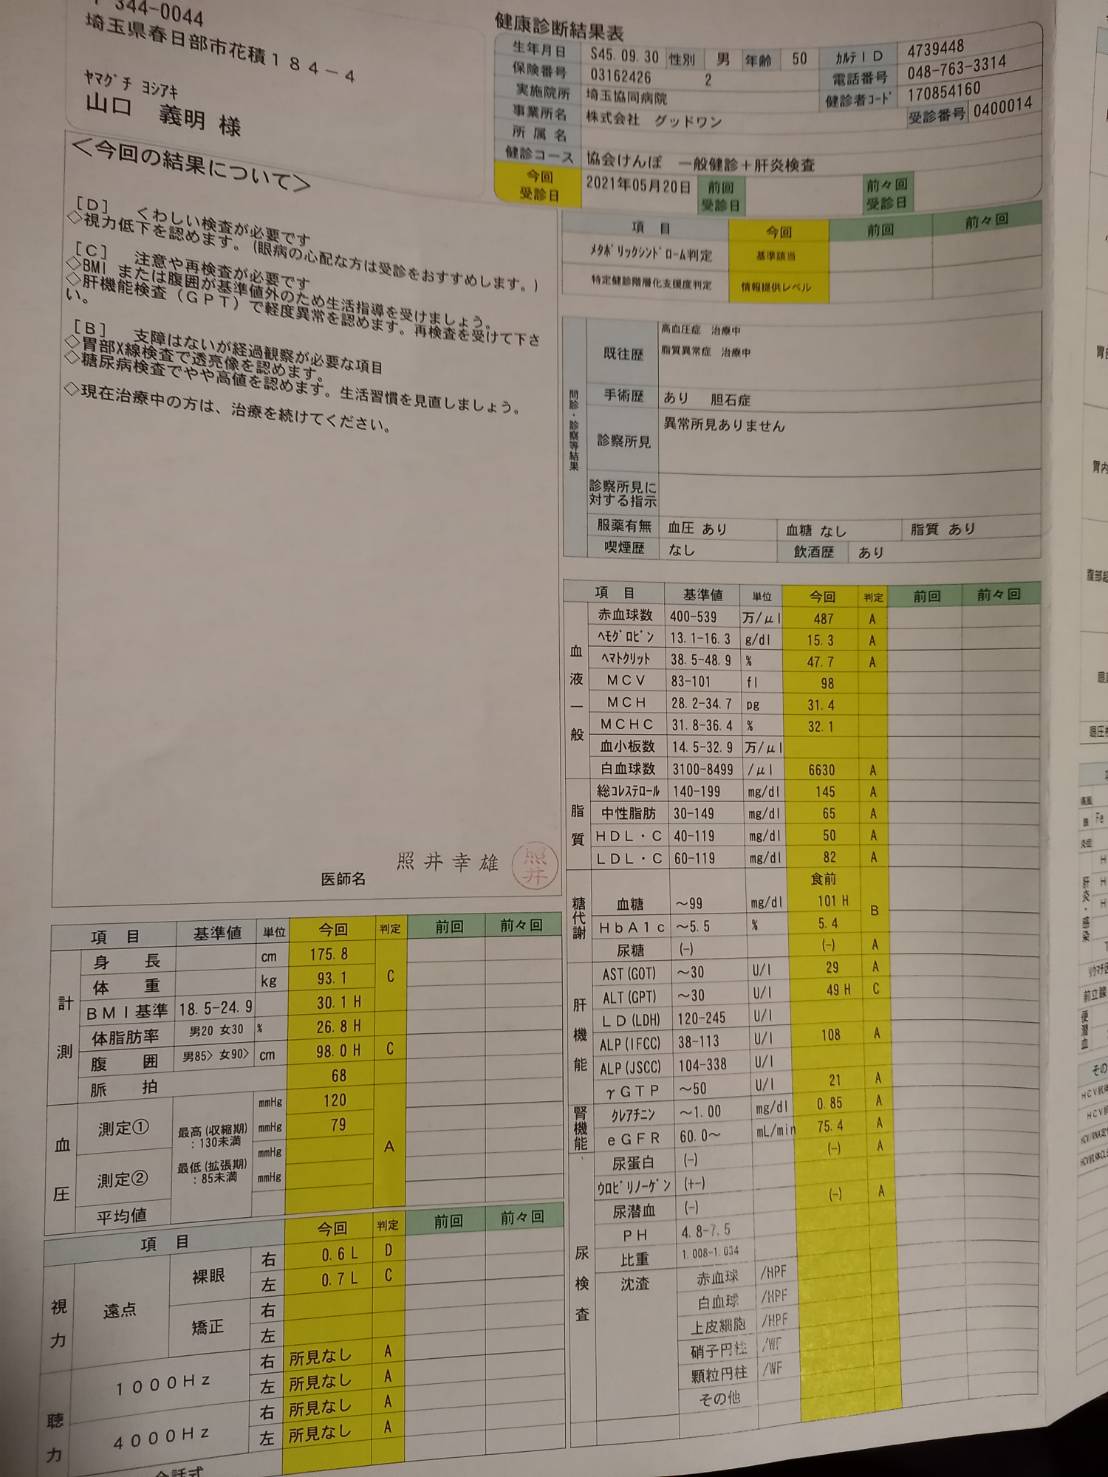 〒344-0044
埼玉県春日部市花積184-4
ヤマグチ ヨシアキ
山口 義明 様
<今回の結果について>
[D] くわしい検査が必要です
◇視力低下を認めます。(眼病の心配な方は受診をおすすめします。)
[C] 注意や再検査が必要です
◇BMIまたは腹囲が基準値外のため生活指導を受けましょう。
◇肝機能検査(GPT)で軽度異常を認めます。再検査を受けて下さい。
[B] 支障はないが経過観察が必要な項目
◇胃部X線検査で透亮像を認めます。
◇糖尿病検査でやや高値を認めます。生活習慣を見直しましょう。
◇現在治療中の方は、治療を続けてください。
医師名 照井幸雄 照井
健康診断結果表
生年月日 S45.09.30 性別 男 年齢 50 カルテID 4739448
保険番号 03162426 2 電話番号 048-763-3314
実施院所 埼玉協同病院 健診者コード 170854160
事業所名 株式会社 グッドワン 受診番号 0400014
所属名
健診コース 協会けんぽ 一般健診+肝炎検査
今回受診日 2021年05月20日 前回受診日 前々回受診日
項目 今回 前回 前々回
メタボリックシンドローム判定 基準該当
特定健診階層化支援度判定 情報提供レベル
問診・診察等結果
既往歴 高血圧症 治療中
脂質異常症 治療中
手術歴 あり 胆石症
診察所見 異常所見ありません
診察所見に対する指示
服薬有無 血圧 あり 血糖 なし 脂質 あり
喫煙歴 なし 飲酒歴 あり
項目 基準値 単位 今回 判定 前回 前々回
血液一般
赤血球数 400-539 万/μl 487 A
ヘモグロビン 13.1-16.3 g/dl 15.3 A
ヘマトクリット 38.5-48.9 % 47.7 A
MCV 83-101 fl 98
MCH 28.2-34.7 pg 31.4
MCHC 31.8-36.4 % 32.1
血小板数 14.5-32.9 万/μl
白血球数 3100-8499 /μl 6630 A
脂質
総コレステロール 140-199 mg/dl 145 A
中性脂肪 30-149 mg/dl 65 A
HDL・C 40-119 mg/dl 50 A
LDL・C 60-119 mg/dl 82 A
糖代謝
食前
血糖 ~99 mg/dl 101 H B
HbA1c ~5.5 % 5.4
尿糖 (-) (-) A
肝機能
AST(GOT) ~30 U/l 29 A
ALT(GPT) ~30 U/l 49 H C
LD(LDH) 120-245 U/l
ALP(IFCC) 38-113 U/l 108 A
ALP(JSCC) 104-338 U/l
γGTP ~50 U/l 21 A
腎機能
クレアチニン ~1.00 mg/dl 0.85 A
eGFR 60.0~ mL/min 75.4 A
尿検査
尿蛋白 (-) (-) A
ウロビリノーゲン (+-)
尿潜血 (-) (-) A
PH 4.8-7.5
比重 1.008-1.034
沈渣 赤血球 /HPF
白血球 /HPF
上皮細胞 /HPF
硝子円柱 /WF
顆粒円柱 /WF
その他
項目 基準値 単位 今回 判定 前回 前々回
計測
身長 cm 175.8
体重 kg 93.1 C
BMI基準 18.5-24.9 30.1 H
体脂肪率 男20 女30 % 26.8 H
腹囲 男85> 女90> cm 98.0 H C
脈拍 68
血圧
測定① 最高(収縮期):130未満 mmHg 120
mmHg 79 A
測定② 最低(拡張期):85未満 mmHg
mmHg
平均値
項目 今回 判定 前回 前々回
視力
遠点 裸眼 右 0.6 L D
左 0.7 L C
矯正 右
左
聴力
1000Hz 右 所見なし A
左 所見なし A
4000Hz 右 所見なし A
左 所見なし A
会話式